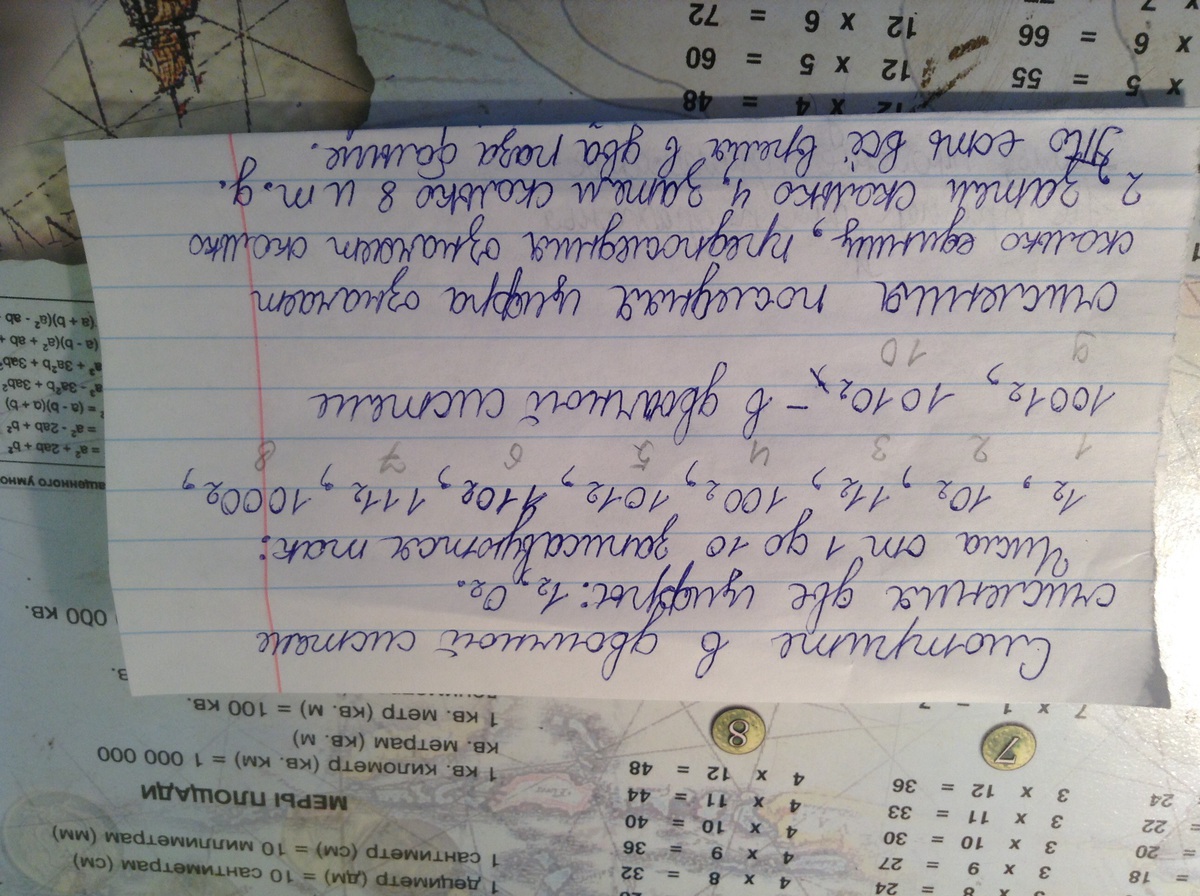 = 18
= 20
= 22
24
3 x 8 = 24
3 x 9 = 27
3 x 10 = 30
3 x 11 = 33
3 x 12 = 36
4 x 8 = 32
4 x 9 = 36
4 x 10 = 40
4 x 11 = 44
4 x 12 = 48
1 дециметр (дм) = 10 сантиметрам (см)
1 сантиметр (см) = 10 миллиметрам (мм)
МЕРЫ ПЛОЩАДИ
1 кв. километр (кв. км) = 1 000 000
кв. метрам (кв. м)
1 кв. метр (кв. м) = 100 кв.
7
8
7 x 1 = 7
000 кв.
Смотрите в двоичной системе
счисления две цифры: 1₂, 0₂.
Числа от 1 до 10 записываются так:
1₂, 10₂, 11₂, 100₂, 101₂, 110₂, 111₂, 1000₂,
1 2 3 4 5 6 7 8
1001₂, 1010₂, – в двоичной системе
9 10
счисления последняя цифра означает
сколько единиц, предпоследняя означает сколько
2, затем сколько 4, затем сколько 8 и т. д.
То есть всё время в два раза больше.
ащенного умно
= a² + 2ab + b²
= a² - 2ab + b²
² = (a - b)(a + b)
a³ - 3a²b + 3ab²
a³ + 3a²b + 3ab²
(a - b)(a² + ab +
(a + b)(a² - ab
x 5 = 55
x 6 = 66
x 7
12 x 4 = 48
12 x 5 = 60
12 x 6 = 72